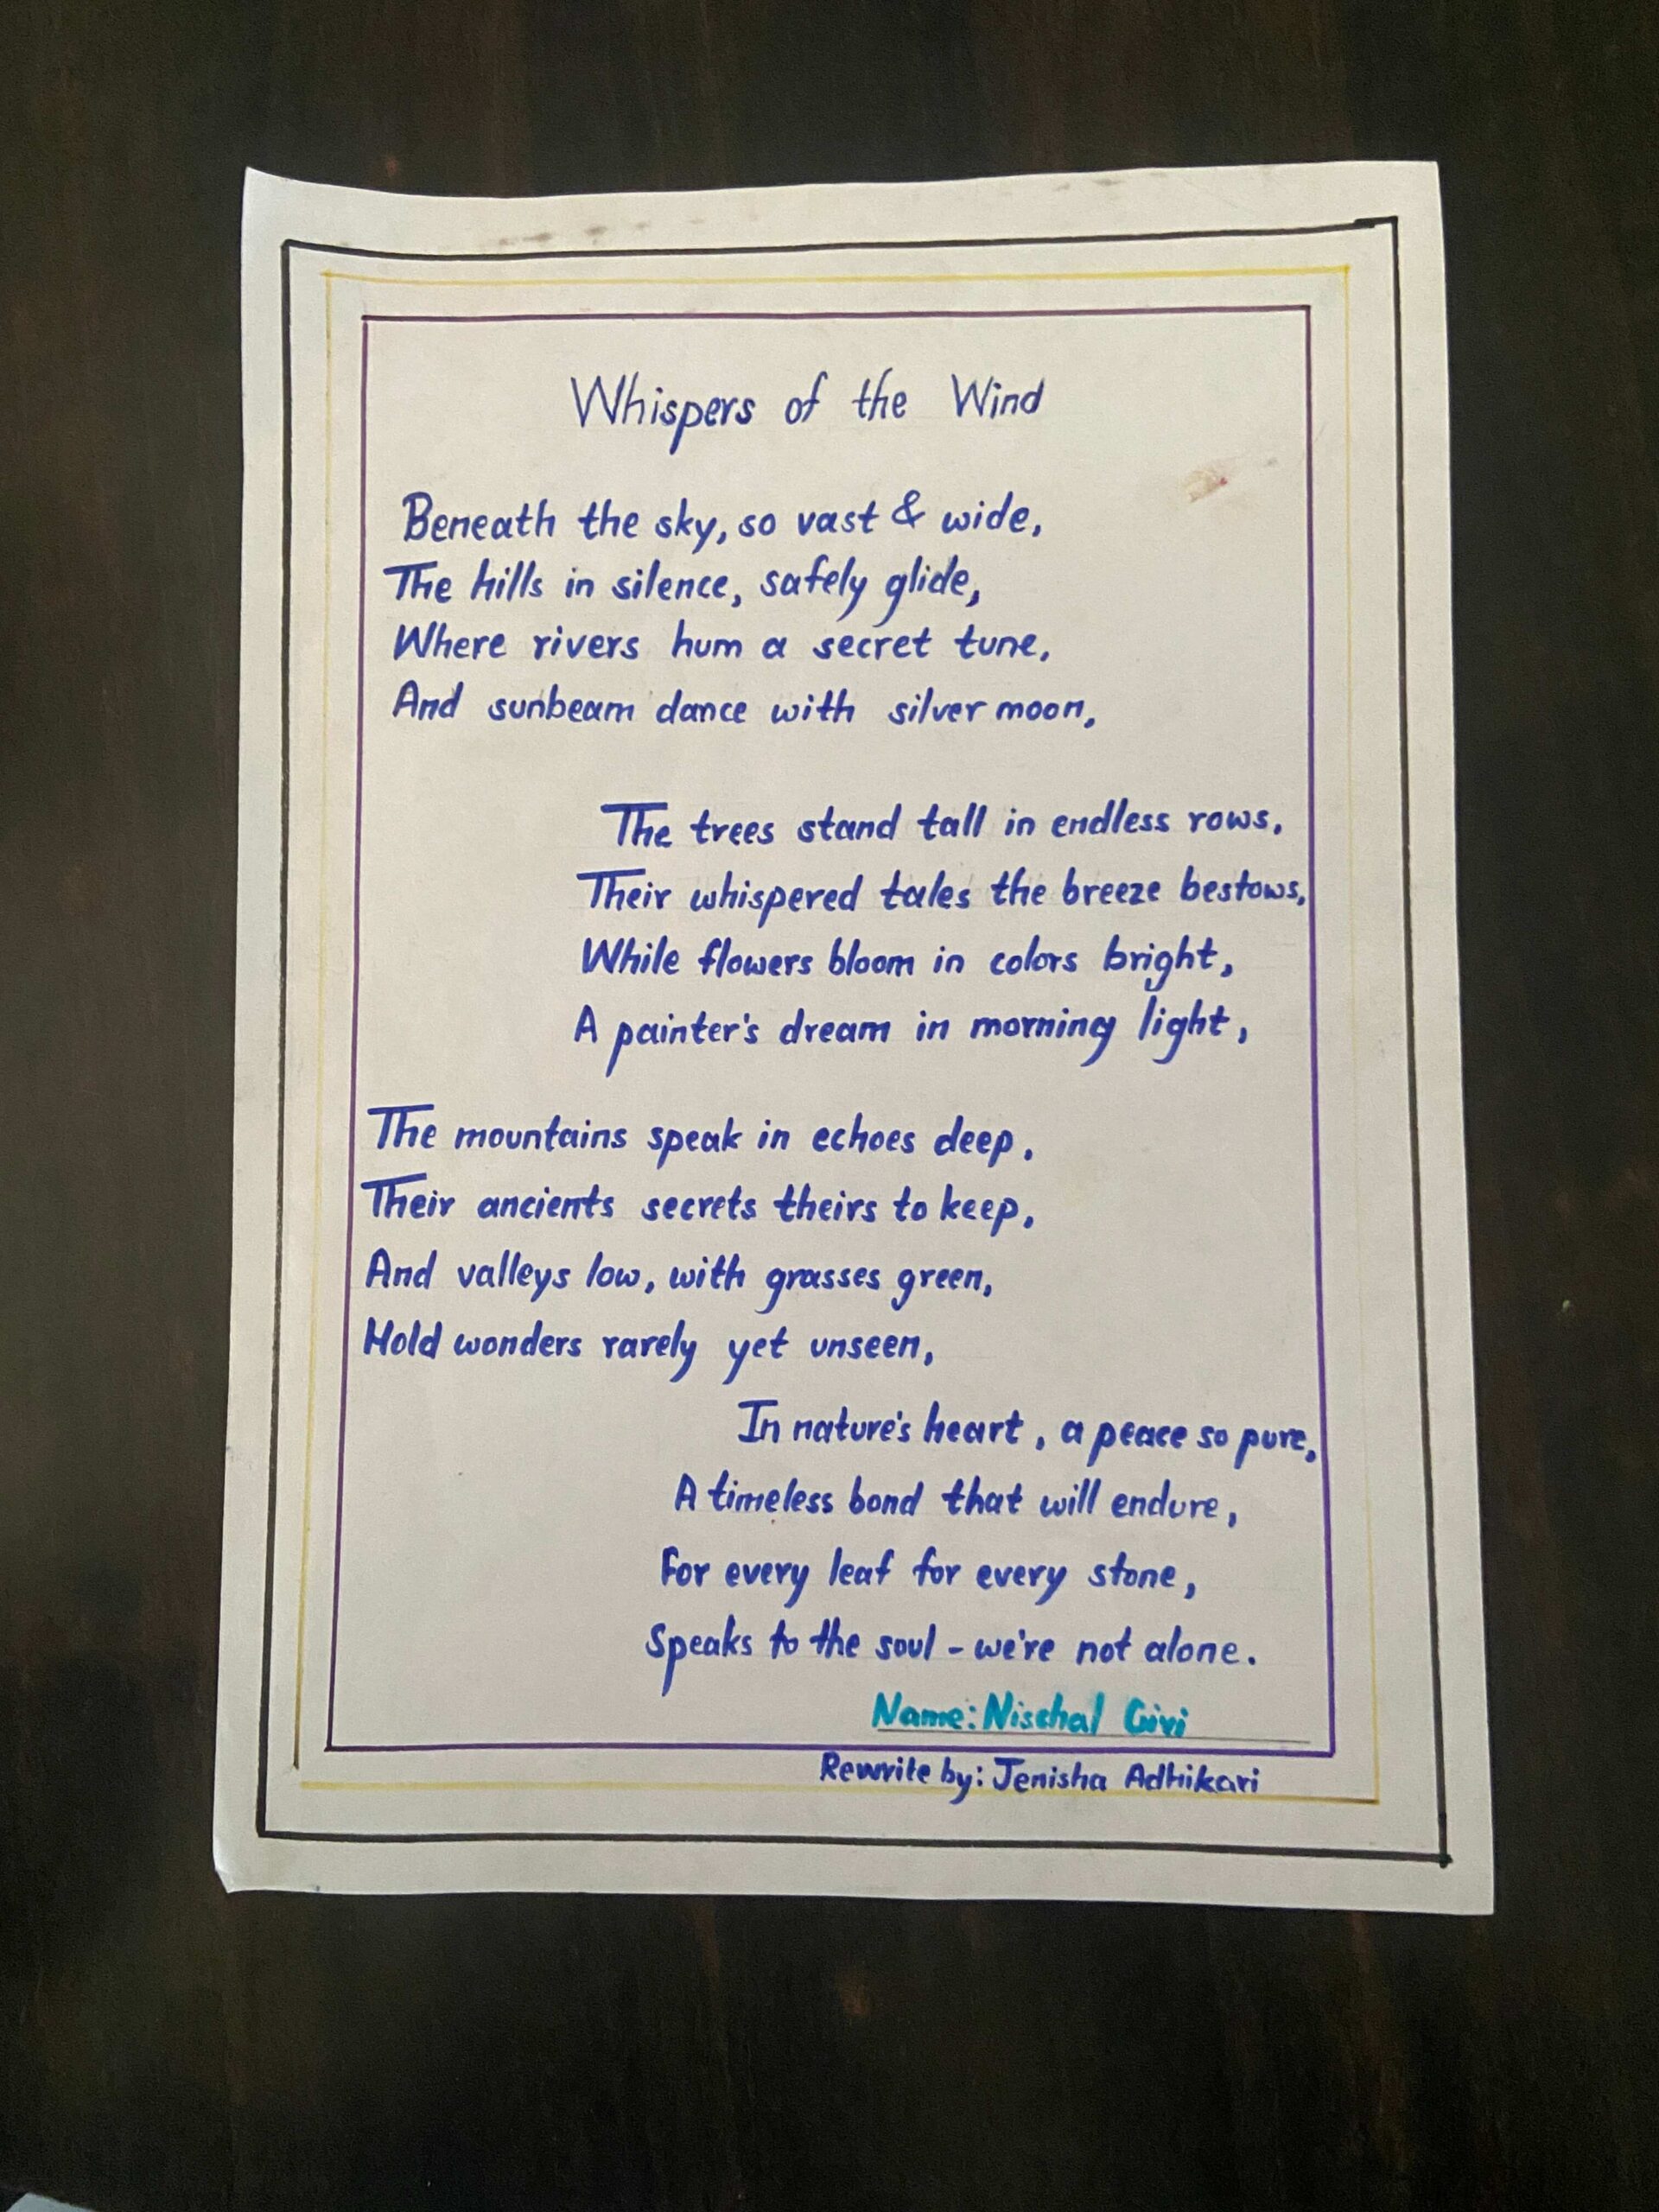 Whispers of the Wind
Beneath the sky, so vast & wide,
The hills in silence, safely glide,
Where rivers hum a secret tune,
And sunbeam dance with silver moon,
The trees stand tall in endless rows,
Their whispered tales the breeze bestows,
While flowers bloom in colors bright,
A painter's dream in morning light,
The mountains speak in echoes deep,
Their ancients secrets theirs to keep,
And valleys low, with grasses green,
Hold wonders rarely yet unseen,
In nature's heart, a peace so pure,
A timeless bond that will endure,
For every leaf for every stone,
Speaks to the soul - we're not alone.
Name: Nischal Giri
Rewrite by: Jenisha Adhikari